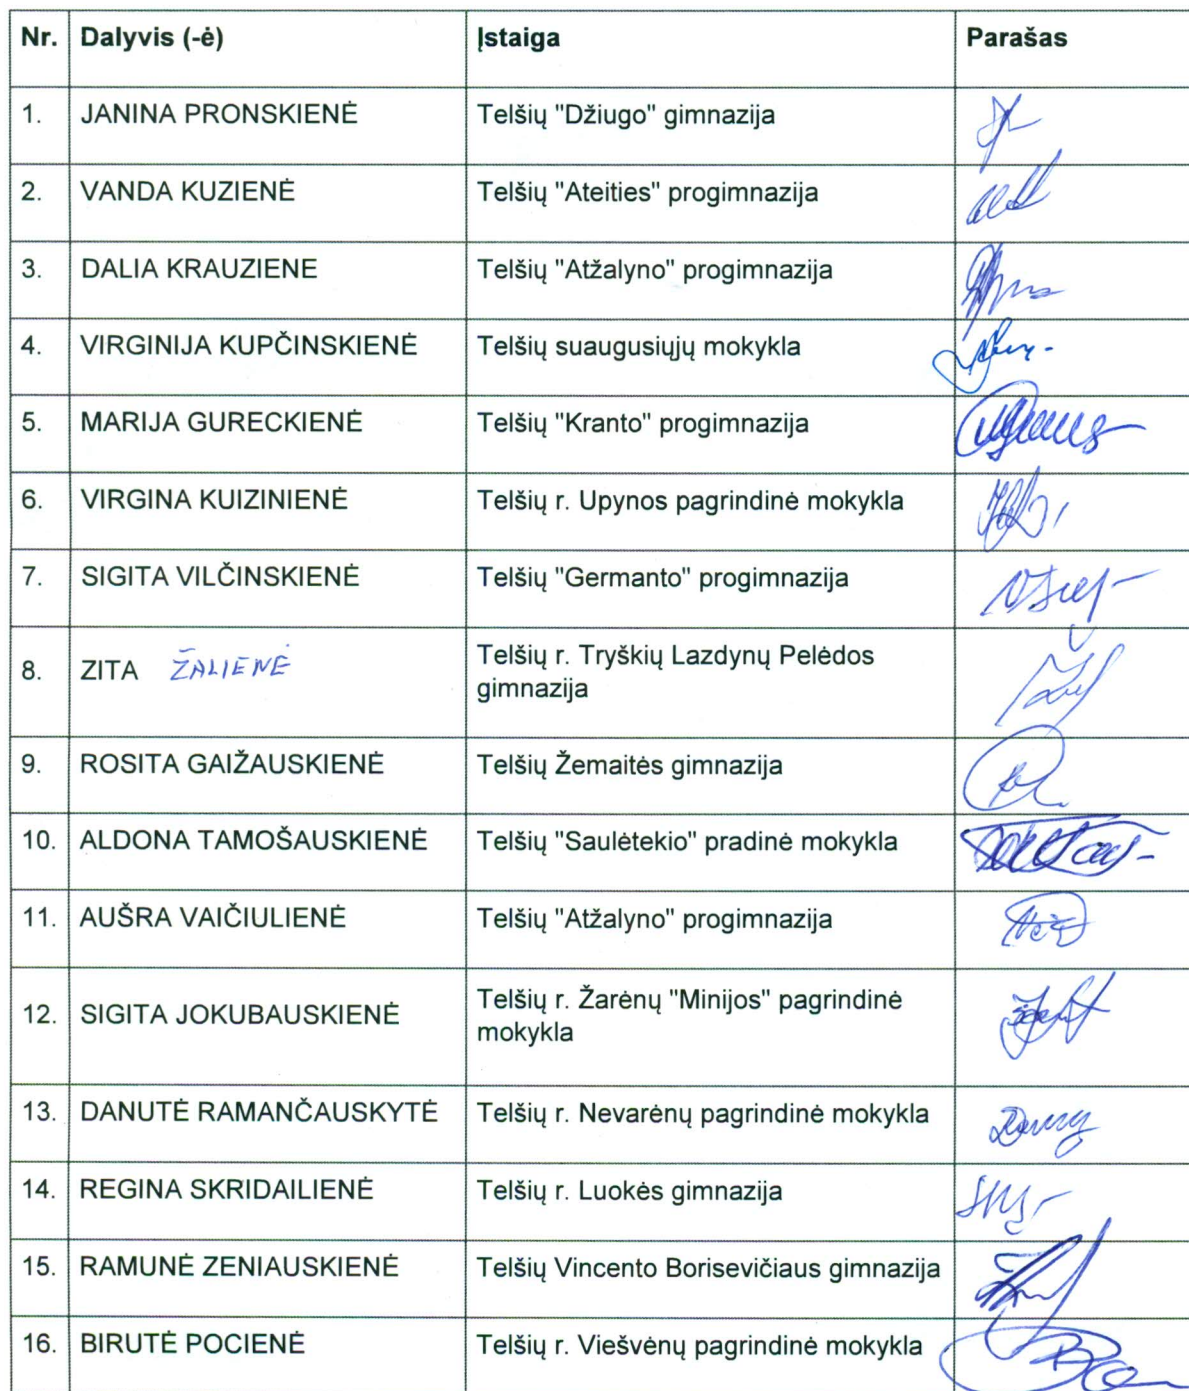 Nr. Dalyvis (-ė) Įstaiga Parašas
1. JANINA PRONSKIENĖ Telšių "Džiugo" gimnazija
2. VANDA KUZIENĖ Telšių "Ateities" progimnazija
3. DALIA KRAUZIENE Telšių "Atžalyno" progimnazija
4. VIRGINIJA KUPČINSKIENĖ Telšių suaugusiųjų mokykla
5. MARIJA GURECKIENĖ Telšių "Kranto" progimnazija
6. VIRGINA KUIZINIENĖ Telšių r. Upynos pagrindinė mokykla
7. SIGITA VILČINSKIENĖ Telšių "Germanto" progimnazija
8. ZITA ŽALIENĖ Telšių r. Tryškių Lazdynų Pelėdos
gimnazija
9. ROSITA GAIŽAUSKIENĖ Telšių Žemaitės gimnazija
10. ALDONA TAMOŠAUSKIENĖ Telšių "Saulėtekio" pradinė mokykla
11. AUŠRA VAIČIULIENĖ Telšių "Atžalyno" progimnazija
12. SIGITA JOKUBAUSKIENĖ Telšių r. Žarėnų "Minijos" pagrindinė
mokykla
13. DANUTĖ RAMANČAUSKYTĖ Telšių r. Nevarėnų pagrindinė mokykla
14. REGINA SKRIDAILIENĖ Telšių r. Luokės gimnazija
15. RAMUNĖ ZENIAUSKIENĖ Telšių Vincento Borisevičiaus gimnazija
16. BIRUTĖ POCIENĖ Telšių r. Viešvėnų pagrindinė mokykla